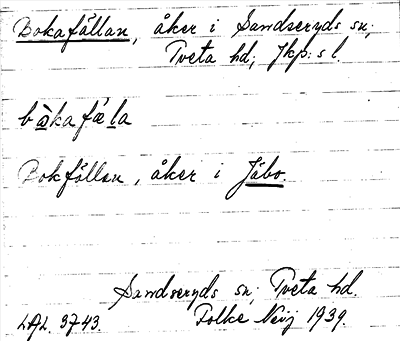 Bokafållan, åker i Sandseryds sn;
Tveta hd; Jkp:s l.
bòkafæla
Bokfållan, åker i Jäbo.
Sandseryds sn; Tveta hd.
LAL. 3743. Folke Neij 1939.